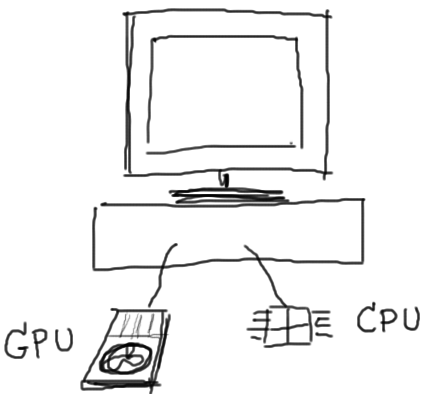 GPU
CPU